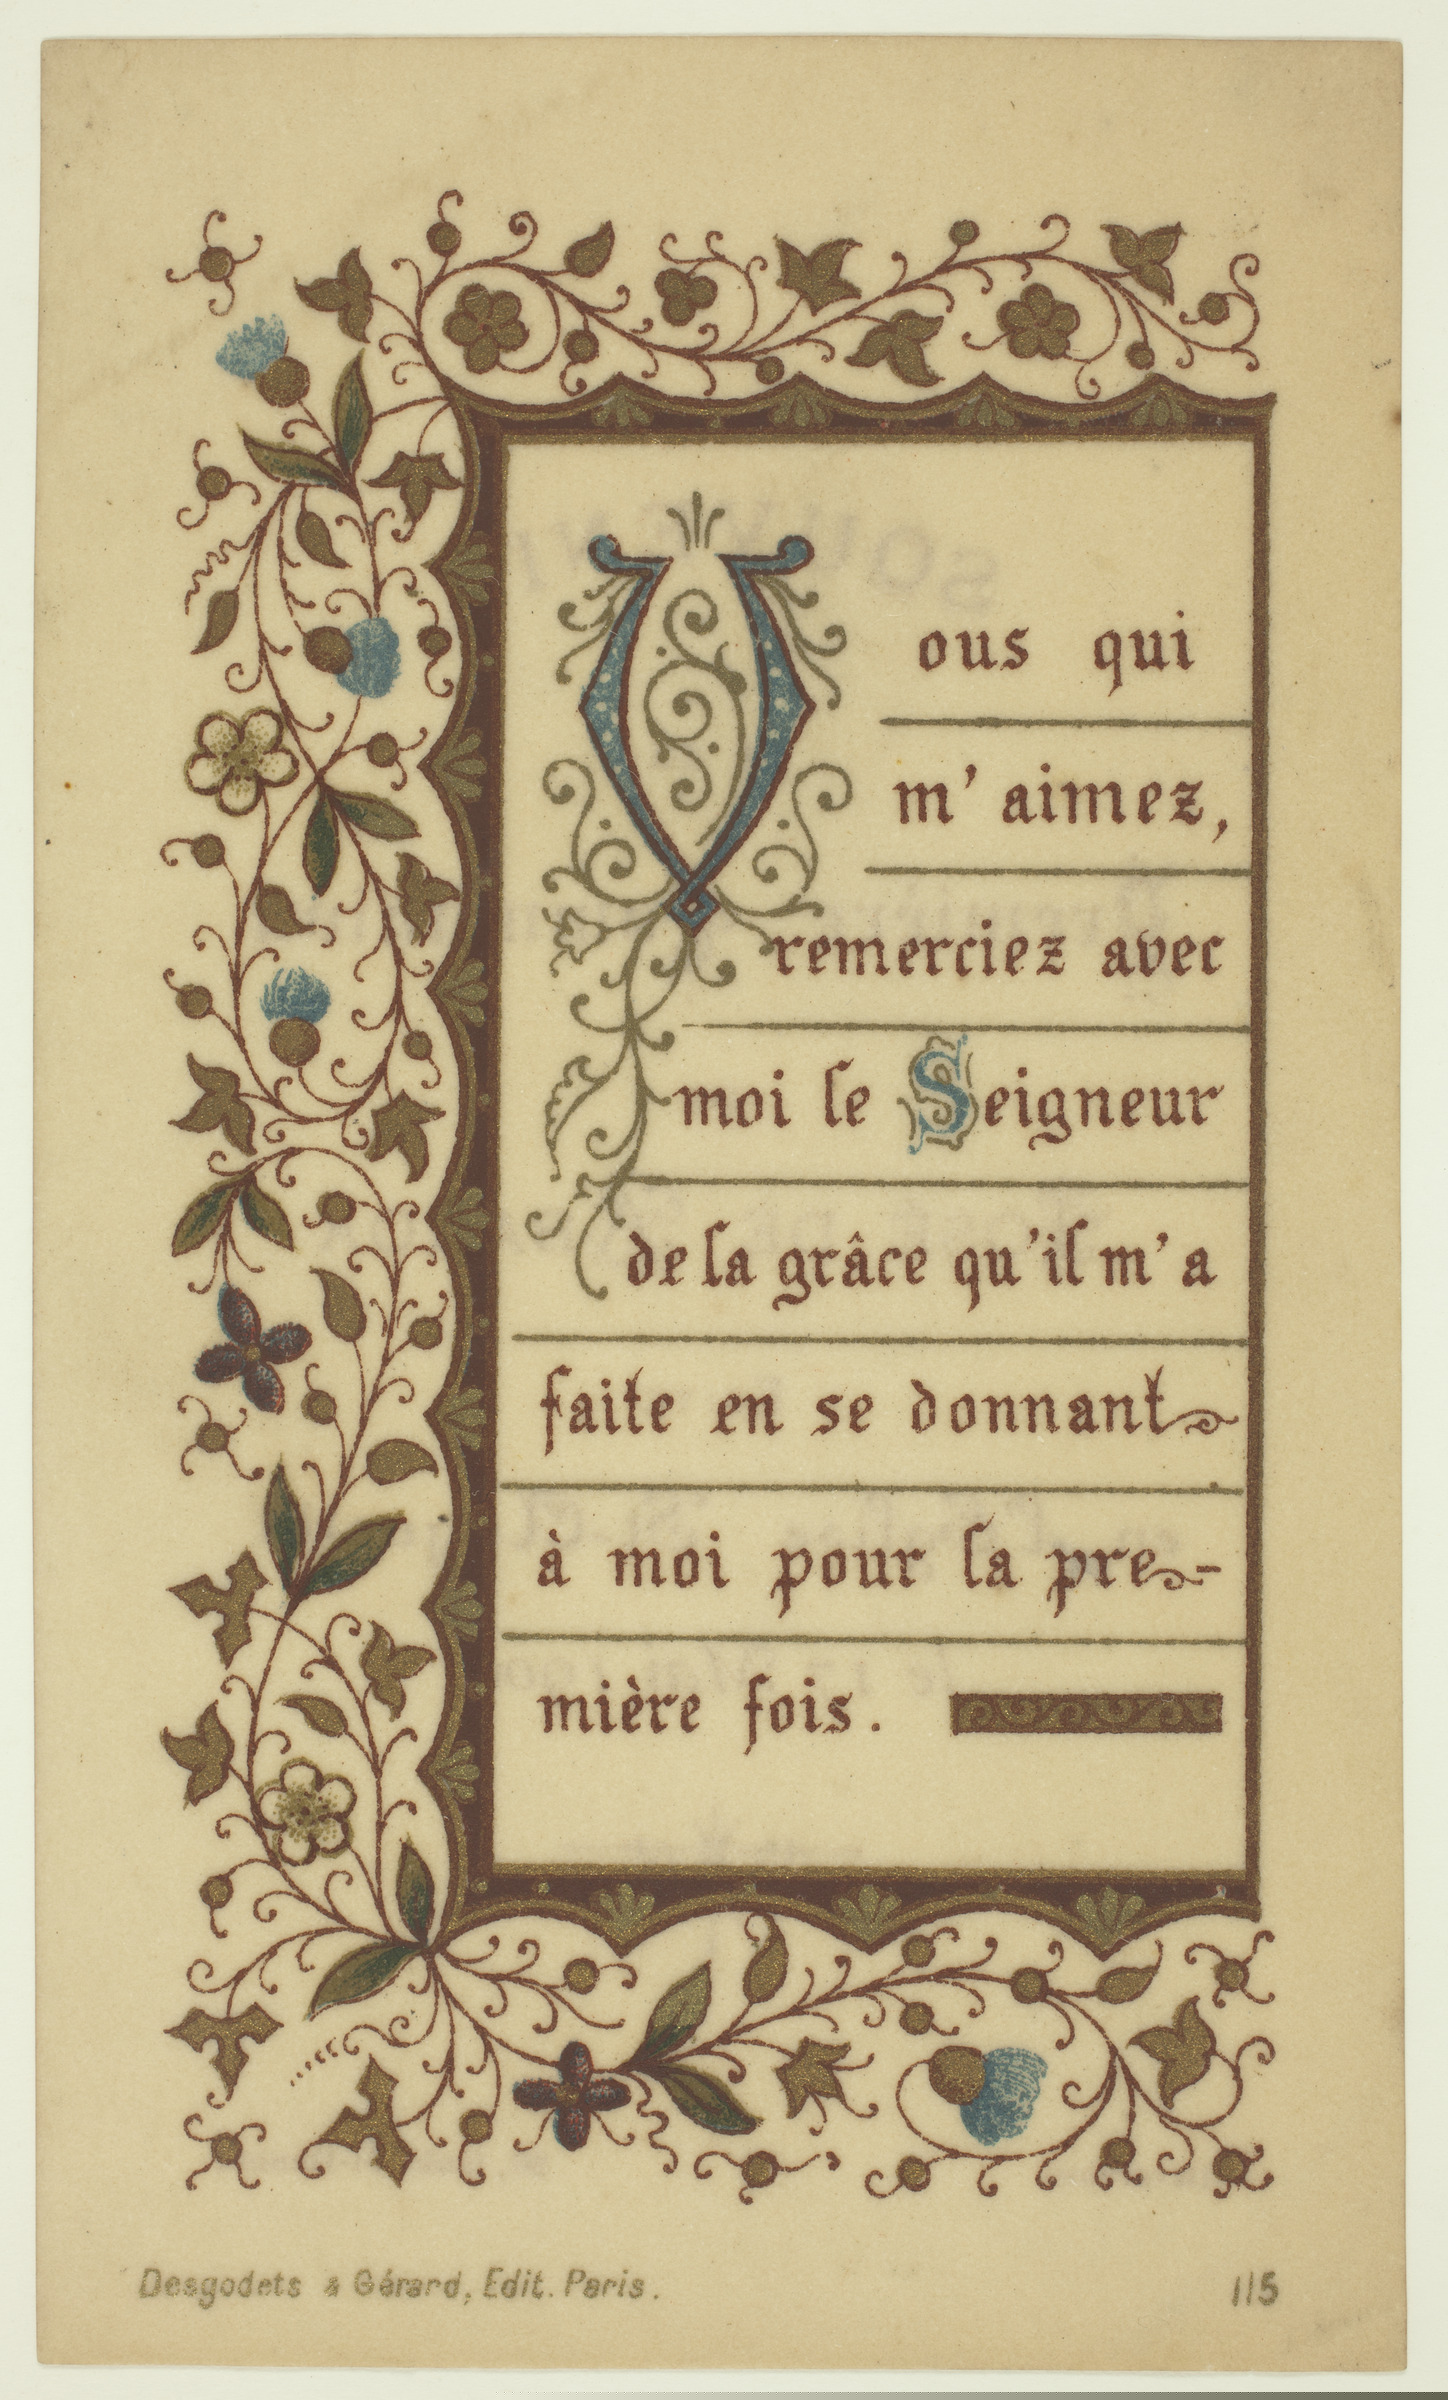 Vous qui
m' aimez,
remerciez avec
moi le Seigneur
de la grâce qu'il m'a
faite en se donnant
à moi pour la pre-
mière fois.
Desgodets & Gérard, Edit. Paris. 115